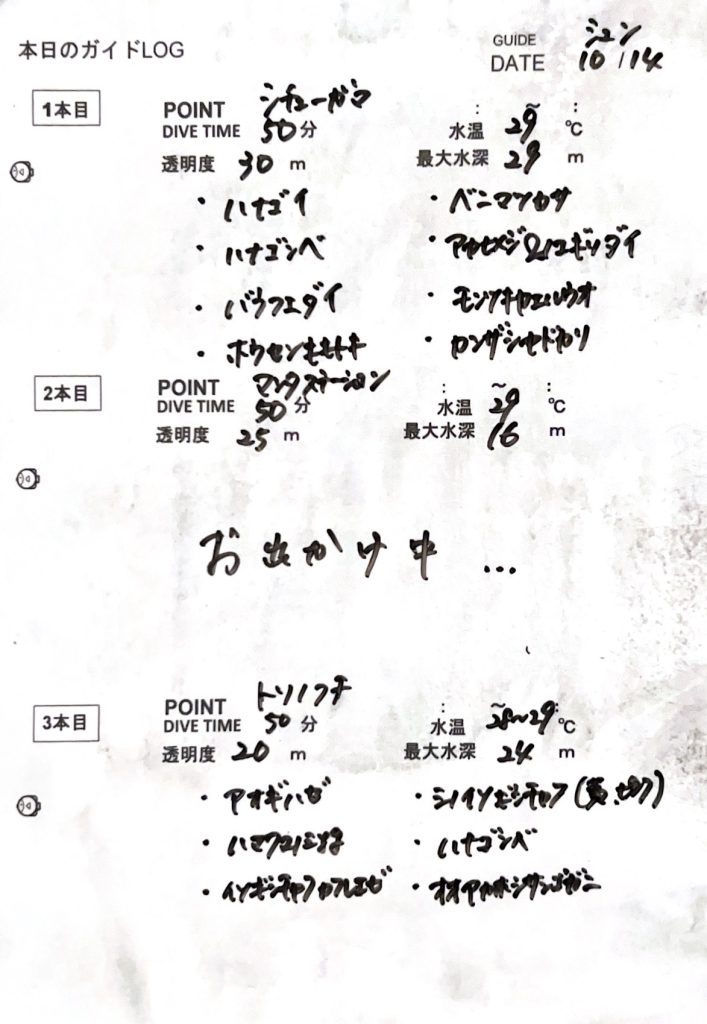 本日のガイドLOG
GUIDE ジュン
DATE 10/14
1本目
POINT シチューガマ
DIVE TIME 50分
水温 29 ℃
透明度 30 m
最大水深 29 m
・ハナゴイ
・ベニマツカサ
・ハナゴンベ
・アカヒメジ&ノコギリダイ
・バラフエダイ
・モンツキカエルウオ
・ホウセキキントキ
・カンザシヤドカリ
2本目
POINT マンタステーション
DIVE TIME 50分
水温 ~29 ℃
透明度 25 m
最大水深 16 m
お出かけ中...
3本目
POINT トリノフチ
DIVE TIME 50分
水温 28~29 ℃
透明度 20 m
最大水深 24 m
・アオギハゼ
・ハナゴンベ
・イソギンチャクカクレエビ
・オオアカホシサンゴガニ